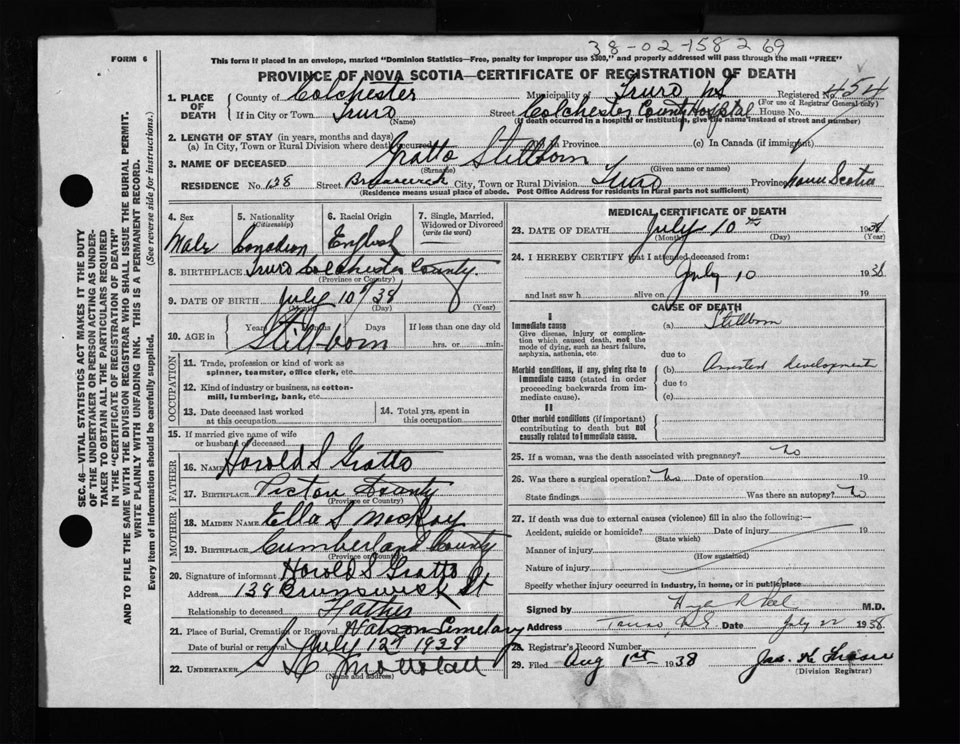 38-02-158269
FORM 6
This form if placed in an envelope, marked "Dominion Statistics—Free, penalty for improper use $300," and properly addressed will pass through the mail "FREE"
PROVINCE OF NOVA SCOTIA—CERTIFICATE OF REGISTRATION OF DEATH
1. PLACE OF DEATH County of Colchester Municipality of Truro NS Registered No. 454
(For use of Registrar General only)
If in City or Town Truro Street Colchester County Hospital House No.
(Name) (If death occurred in a hospital or institution, give the name instead of street and number)
2. LENGTH OF STAY (in years, months and days)
(a) In City, Town or Rural Division where death occurred (b) In Province (c) In Canada (if immigrant)
3. NAME OF DECEASED Gratto Stillborn
(Surname) (Given name or names)
RESIDENCE No. 138 Street Brunswick City, Town or Rural Division Truro Province Nova Scotia
(Residence means usual place of abode. Post Office Address for residents in rural parts not sufficient)
4. Sex Male
5. Nationality (Citizenship) Canadian
6. Racial Origin English
7. Single, Married, Widowed or Divorced (write the word)
8. BIRTHPLACE Truro Colchester County
(Province or Country)
9. DATE OF BIRTH July 10/38
(Month) (Day) (Year)
10. AGE in Years Months Days If less than one day old
Stillborn hrs. or min.
OCCUPATION
11. Trade, profession or kind of work as spinner, teamster, office clerk, etc.
12. Kind of industry or business, as cotton-mill, lumbering, bank, etc.
13. Date deceased last worked at this occupation
14. Total yrs, spent in this occupation
15. If married give name of wife or husband of deceased
FATHER
16. NAME Harold S Gratto
17. BIRTHPLACE Pictou County
(Province or Country)
MOTHER
18. MAIDEN NAME Ella S
19. BIRTHPLACE Cumberland County
(Province or Country)
20. Signature of informant Harold S Gratto
Address 138 Brunswick St
Relationship to deceased Father
21. Place of Burial, Cremation or Removal Watson Cemetary
Date of burial or removal July 12th 1938
22. UNDERTAKER
(Name and address)
MEDICAL CERTIFICATE OF DEATH
23. DATE OF DEATH July 10th 1938
(Month) (Day) (Year)
24. I HEREBY CERTIFY that I attended deceased from
July 10 1938
and last saw h alive on 19
CAUSE OF DEATH
I
Immediate cause (a) Stillborn
Give disease, injury or complication which caused death, not the mode of dying, such as heart failure, asphyxia, asthenia, etc.
due to
Morbid conditions, if any, giving rise to immediate cause (stated in order proceeding backwards from immediate cause).
(b) Arrested development
due to
(c)
II
Other morbid conditions (if important) contributing to death but not causally related to immediate cause.
25. If a woman, was the death associated with pregnancy? No
26. Was there a surgical operation? No Date of operation 19
State findings Was there an autopsy? No
27. If death was due to external causes (violence) fill in also the following:—
Accident, suicide or homicide? Date of injury 19
(State which)
Manner of injury
(How sustained)
Nature of injury
Specify whether injury occurred in industry, in home, or in public place
Signed by M.D.
Address Truro, N.S. Date July 22 1938
28. Registrar's Record Number
29. Filed Aug 1st 1938
(Division Registrar)
SEC. 46—VITAL STATISTICS ACT MAKES IT THE DUTY
OF THE UNDERTAKER OR PERSON ACTING AS UNDER-
TAKER TO OBTAIN ALL THE PARTICULARS REQUIRED
IN THE "CERTIFICATE OF REGISTRATION OF DEATH"
AND TO FILE THE SAME WITH THE DIVISION REGISTRAR WHO SHALL ISSUE THE BURIAL PERMIT.
WRITE PLAINLY WITH UNFADING INK. THIS IS A PERMANENT RECORD.
Every item of information should be carefully supplied. (See reverse side for instructions.)